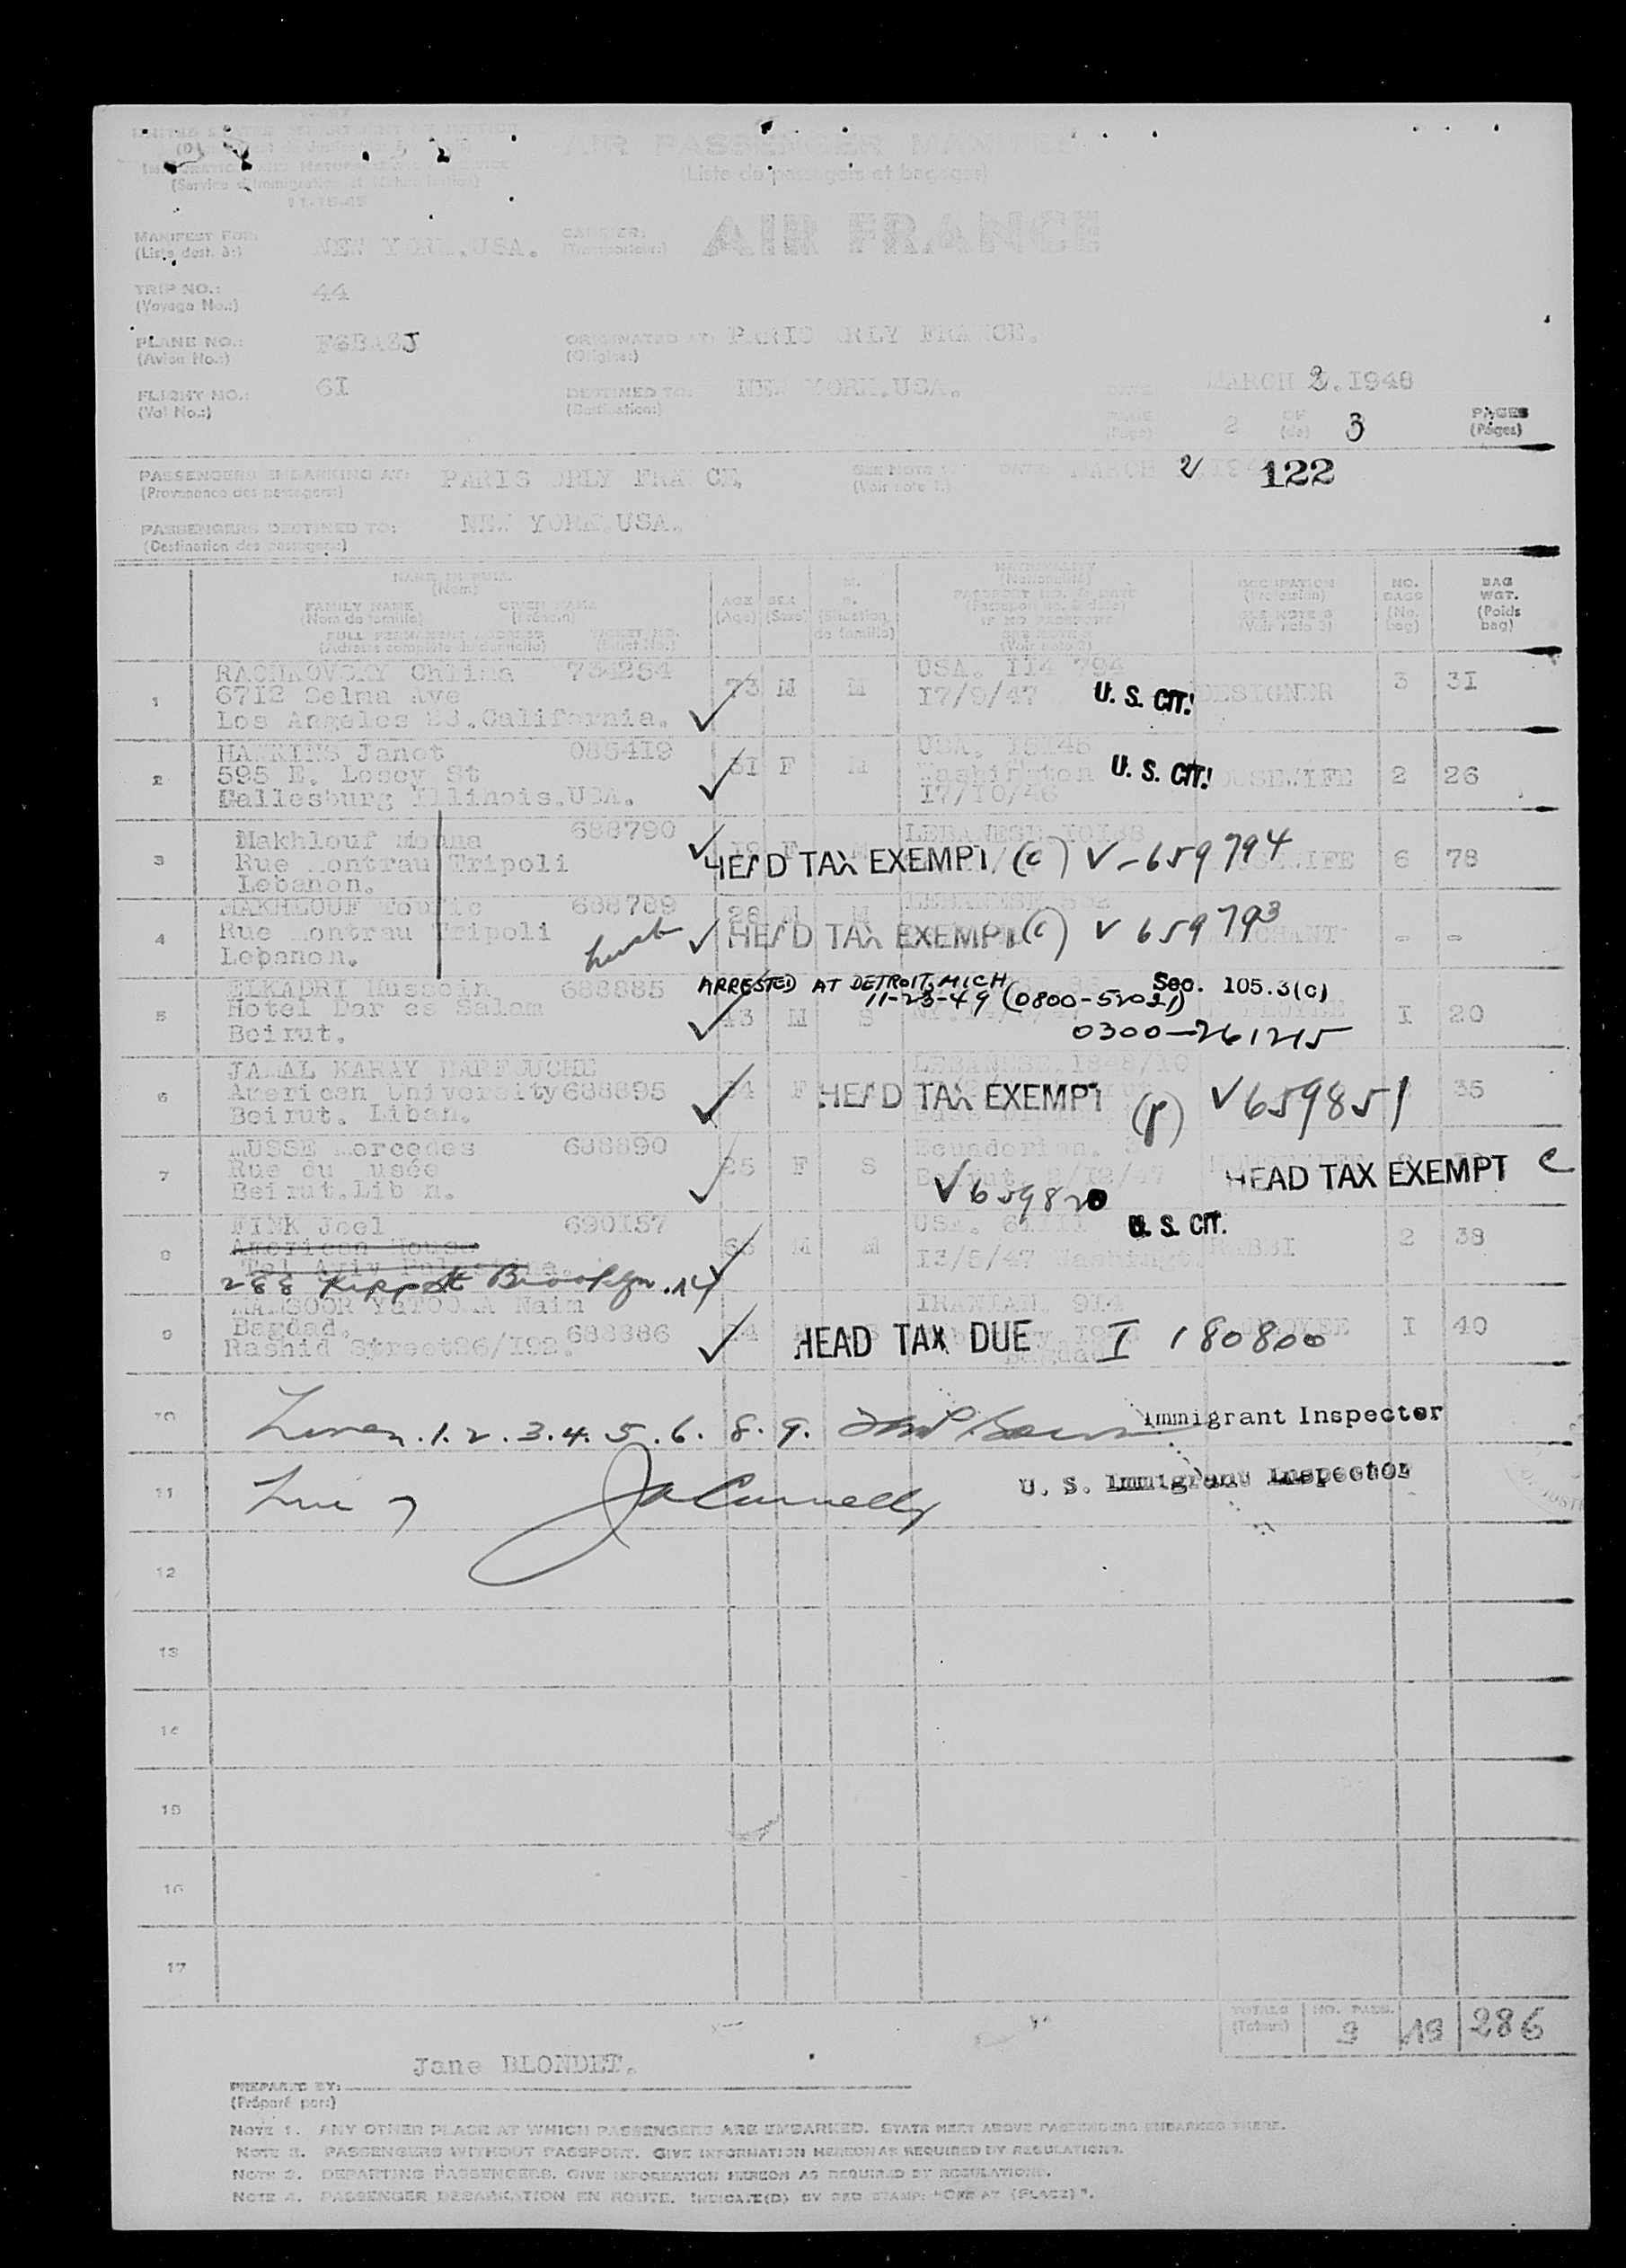 UNITED STATES DEPARTMENT OF JUSTICE
AIR PASSENGER MANIFEST
(Liste de passagers et bagages)
IMMIGRATION AND NATURALIZATION SERVICE
(Service d'Immigration et Naturalisation)
11-15-45
MANIFEST FOR: NEW YORK.USA. CARRIER: AIR FRANCE
(Liste dest. à:) (Transporteur:)
TRIP NO.: 44
(Voyage No.:)
PLANE NO.: ORIGINATED AT: PARIS ORLY FRANCE.
(Avion No.:) (Origine:)
FLIGHT NO.: 6I DESTINED TO: NEW YORK.USA. DATE MARCH 2.I948
(Vol No.:) (Destination:)
PAGE 2 OF 3 PAGES
(Page) (de) (Pages)
PASSENGERS EMBARKING AT: PARIS ORLY FRANCE. SEE NOTE 1: DATE: MARCH 2 122
(Provenance des passagers:) (Voir note 1.)
PASSENGERS DESTINED TO: NEW YORK USA.
(Destination des passagers:)
NAME IN FULL
(Nom)
FAMILY NAME GIVEN NAME
(Nom de famille) (Prénom)
FULL PERMANENT ADDRESS TICKET NO.
(Adresse complète du domicile) (Billet No.)
AGE SEX
(Age) (Sexe) (Situation de famille)
NATIONALITY
(Nationalité)
PASSPORT NO. & DATE
(Passeport no. & date)
IF NO PASSPORT
SEE NOTE 2
(Voir note 2)
OCCUPATION
(Profession)
SEE NOTE 3
(Voir note 3)
NO. BAGS
(No. bag)
BAG WGT.
(Poids bag)
1 RACHKOVSKY 734254 73 M M USA. II4 794 DESIGNER 3 3I
67I2 Selma Ave I7/9/47 U. S. CIT.
Los Angeles 28.California.
2 HAWKINS Janet 085419 3I F M USA. HOUSEWIFE 2 26
595 E. Losey St Washington U. S. CIT.
Illinois.USA. I7/I0/46
3 Makhlouf Mouna 688790 LEBANESE 6 78
Rue Montrau Tripoli HEAD TAX EXEMPT (c) V-659794
Lebanon.
4 MAKHLOUF Toufic 688789 28 M M LEBANESE
Rue Montrau Tripoli HEAD TAX EXEMPT (c) V 659793 MERCHANT - -
Lebanon.
5 ELKADRI Hussein 688885 ARRESTED AT DETROIT, MICH Sec. 105.3(c)
Hotel Dar es Salam 43 M S 11-23-49 (0800-52021) I 20
Beirut. 0300-261215
6 JAMAL KARAY HARFOUCHE LEBANESE.
American University 688895 F HEAD TAX EXEMPT (f) V659851 35
Beirut. Liban.
7 MUSSE Mercedes 688890 25 F S Ecuadorian.
Rue du Musée Beirut HEAD TAX EXEMPT C
Beirut.Liban. V659820
8 FINK Joel 690I57 M M USA. U. S. CIT. RABBI 2 38
American House I3/8/47
Tel Aviv Palestine
Brooklyn. NY
9 MANSOOR Naim IRANIAN. 9I4 I 40
Bagdad. 688886 HEAD TAX DUE I 180800
Rashid Street26/I92.
10 Lines .1.2.3.4.5.6. 8.9. Immigrant Inspector
11 Line 7 U. S. Immigrant Inspector
12
13
14
15
16
17
TOTALS NO. PASS. 9 19 286
(Totaux)
Jane BLONDET.
PREPARED BY:
(Préparé par:)
NOTE 1. ANY OTHER PLACE AT WHICH PASSENGERS ARE EMBARKED. STATE NEXT ABOVE PASSENGERS EMBARKED THERE.
NOTE 2. PASSENGERS WITHOUT PASSPORT. GIVE INFORMATION HEREON AS REQUIRED BY REGULATIONS.
NOTE 3. DEPARTING PASSENGERS. GIVE INFORMATION HEREON AS REQUIRED BY REGULATIONS.
NOTE 4. PASSENGER DEBARKATION EN ROUTE. INDICATE(D) BY RED STAMP: "OFF AT (PLACE)".